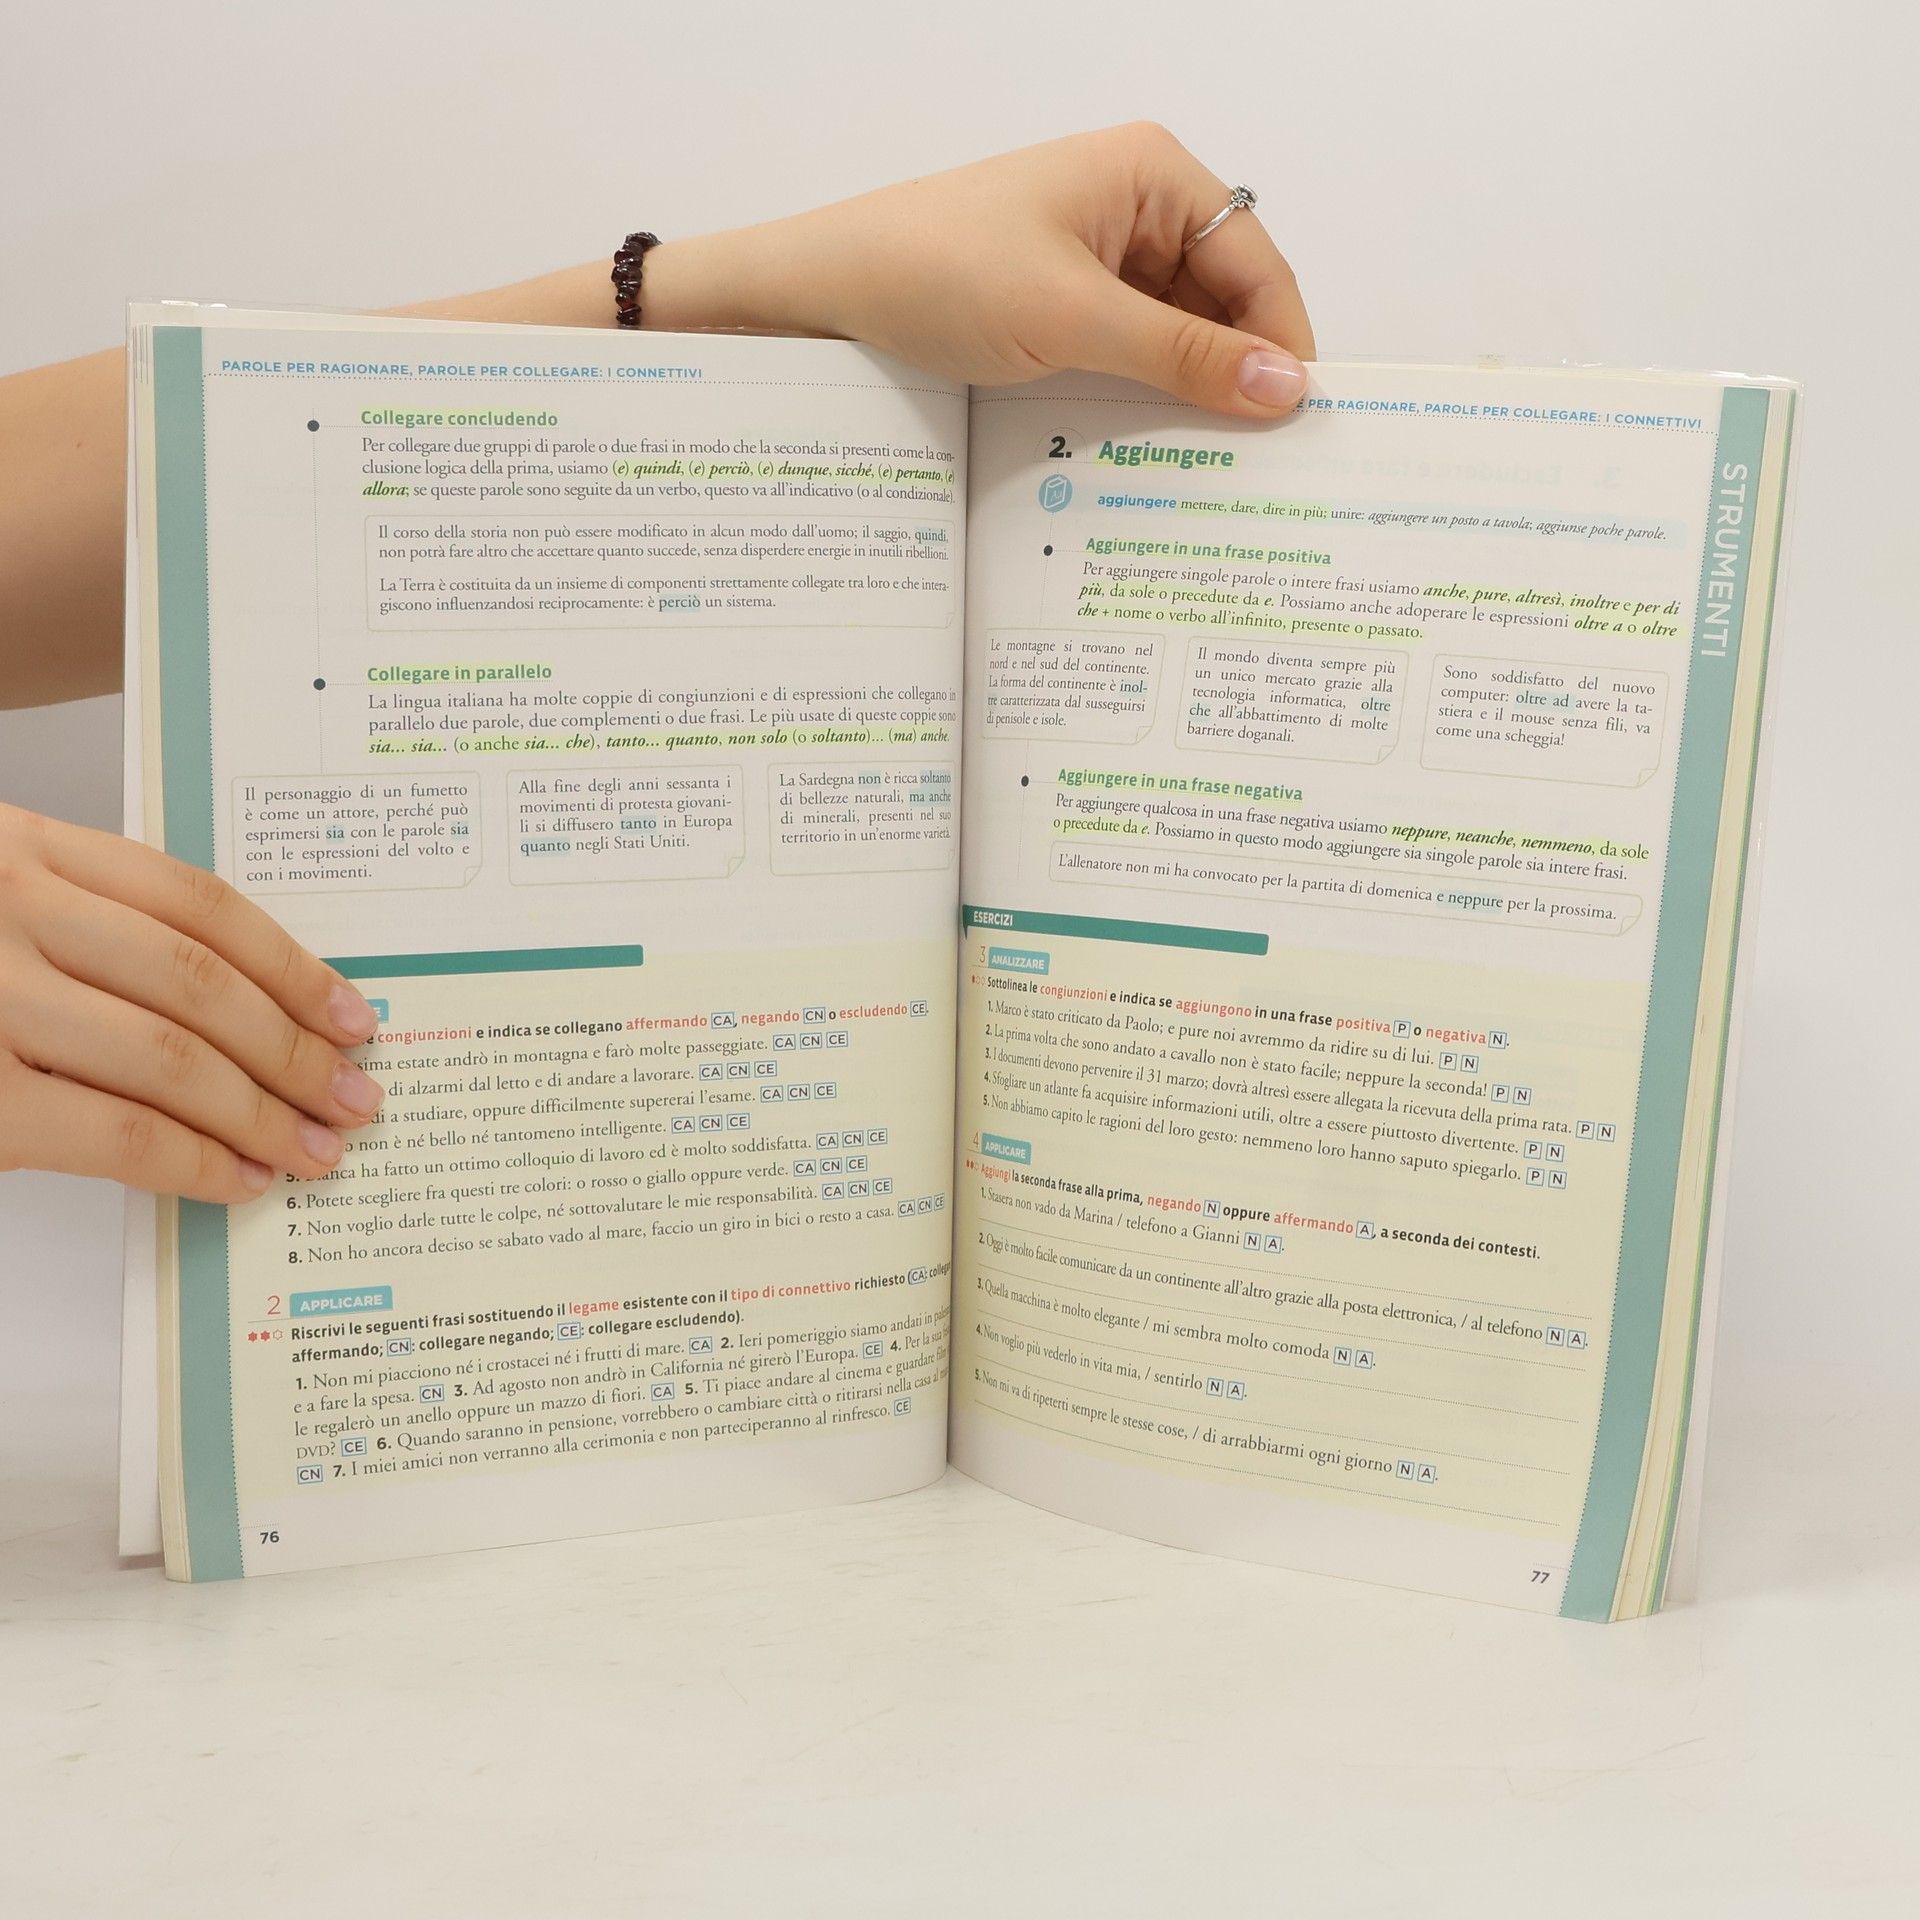 PAROLE PER RAGIONARE, PAROLE PER COLLEGARE: I CONNETTIVI
Collegare concludendo
Per collegare due gruppi di parole o due frasi in modo che la seconda si presenti come la con-
clusione logica della prima, usiamo (e) quindi, (e) perciò, (e) dunque, sicché, (e) pertanto, (e)
allora; se queste parole sono seguite da un verbo, questo va all'indicativo (o al condizionale).
Il corso della storia non può essere modificato in alcun modo dall'uomo; il saggio, quindi,
non potrà fare altro che accettare quanto succede, senza disperdere energie in inutili ribellioni.
La Terra è costituita da un insieme di componenti strettamente collegate tra loro e che intera-
giscono influenzandosi reciprocamente: è perciò un sistema.
Collegare in parallelo
La lingua italiana ha molte coppie di congiunzioni e di espressioni che collegano in
parallelo due parole, due complementi o due frasi. Le più usate di queste coppie sono
sia... sia... (o anche sia... che), tanto... quanto, non solo (o soltanto)... (ma) anche.
Il personaggio di un fumetto
è come un attore, perché può
esprimersi sia con le parole sia
con le espressioni del volto e
con i movimenti.
Alla fine degli anni sessanta i
movimenti di protesta giovani-
li si diffusero tanto in Europa
quanto negli Stati Uniti.
La Sardegna non è ricca soltanto
di bellezze naturali, ma anche
di minerali, presenti nel suo
territorio in un'enorme varietà.
congiunzioni e indica se collegano affermando CA, negando CN o escludendo CE.
sima estate andrò in montagna e farò molte passeggiate. CA CN CE
di alzarmi dal letto e di andare a lavorare. CA CN CE
di a studiare, oppure difficilmente supererai l'esame. CA CN CE
o non è né bello né tantomeno intelligente. CA CN CE
5. anca ha fatto un ottimo colloquio di lavoro ed è molto soddisfatta. CA CN CE
6. Potete scegliere fra questi tre colori: o rosso o giallo oppure verde. CA CN CE
7. Non voglio darle tutte le colpe, né sottovalutare le mie responsabilità. CA CN CE
8. Non ho ancora deciso se sabato vado al mare, faccio un giro in bici o resto a casa. CA CN CE
2 APPLICARE
Riscrivi le seguenti frasi sostituendo il legame esistente con il tipo di connettivo richiesto (CA: collegare
affermando; CN: collegare negando; CE: collegare escludendo).
1. Non mi piacciono né i crostacei né i frutti di mare. CA 2. Ieri pomeriggio siamo andati in
e a fare la spesa. CN 3. Ad agosto non andrò in California né girerò l'Europa. CE 4. Per la sua
le regalerò un anello oppure un mazzo di fiori. CA 5. Ti piace andare al cinema e guardare film
DVD? CE 6. Quando saranno in pensione, vorrebbero o cambiare città o ritirarsi nella casa al
CN 7. I miei amici non verranno alla cerimonia e non parteciperanno al rinfresco. CE
76
E PER RAGIONARE, PAROLE PER COLLEGARE: I CONNETTIVI
STRUMENTI
2. Aggiungere
aggiungere mettere, dare, dire in più; unire: aggiungere un posto a tavola; aggiunse poche parole.
Aggiungere in una frase positiva
Per aggiungere singole parole o intere frasi usiamo anche, pure, altresì, inoltre e per di
più, da sole o precedute da e. Possiamo anche adoperare le espressioni oltre a o oltre
che + nome o verbo all'infinito, presente o passato.
Le montagne si trovano nel
nord e nel sud del continente.
La forma del continente è inol-
tre caratterizzata dal susseguirsi
di penisole e isole.
Il mondo diventa sempre più
un unico mercato grazie alla
tecnologia informatica, oltre
che all'abbattimento di molte
barriere doganali.
Sono soddisfatto del nuovo
computer: oltre ad avere la ta-
stiera e il mouse senza fili, va
come una scheggia!
Aggiungere in una frase negativa
Per aggiungere qualcosa in una frase negativa usiamo neppure, neanche, nemmeno, da sole
o precedute da e. Possiamo in questo modo aggiungere sia singole parole sia intere frasi.
L'allenatore non mi ha convocato per la partita di domenica e neppure per la prossima.
ESERCIZI
3 ANALIZZARE
Sottolinea le congiunzioni e indica se aggiungono in una frase positiva P o negativa N.
1. Marco è stato criticato da Paolo; e pure noi avremmo da ridire su di lui. P N
2. La prima volta che sono andato a cavallo non è stato facile; neppure la seconda! P N
3. I documenti devono pervenire il 31 marzo; dovrà altresì essere allegata la ricevuta della prima rata. P N
4. Sfogliare un atlante fa acquisire informazioni utili, oltre a essere piuttosto divertente. P N
5. Non abbiamo capito le ragioni del loro gesto: nemmeno loro hanno saputo spiegarlo. P N
4 APPLICARE
Aggiungi la seconda frase alla prima, negando N oppure affermando A, a seconda dei contesti.
1. Stasera non vado da Marina / telefono a Gianni N A.
2. Oggi è molto facile comunicare da un continente all'altro grazie alla posta elettronica, / al telefono N A.
3. Quella macchina è molto elegante / mi sembra molto comoda N A.
4. Non voglio più vederlo in vita mia, / sentirlo N A.
5. Non mi va di ripeterti sempre le stesse cose, / di arrabbiarmi ogni giorno N A.
77